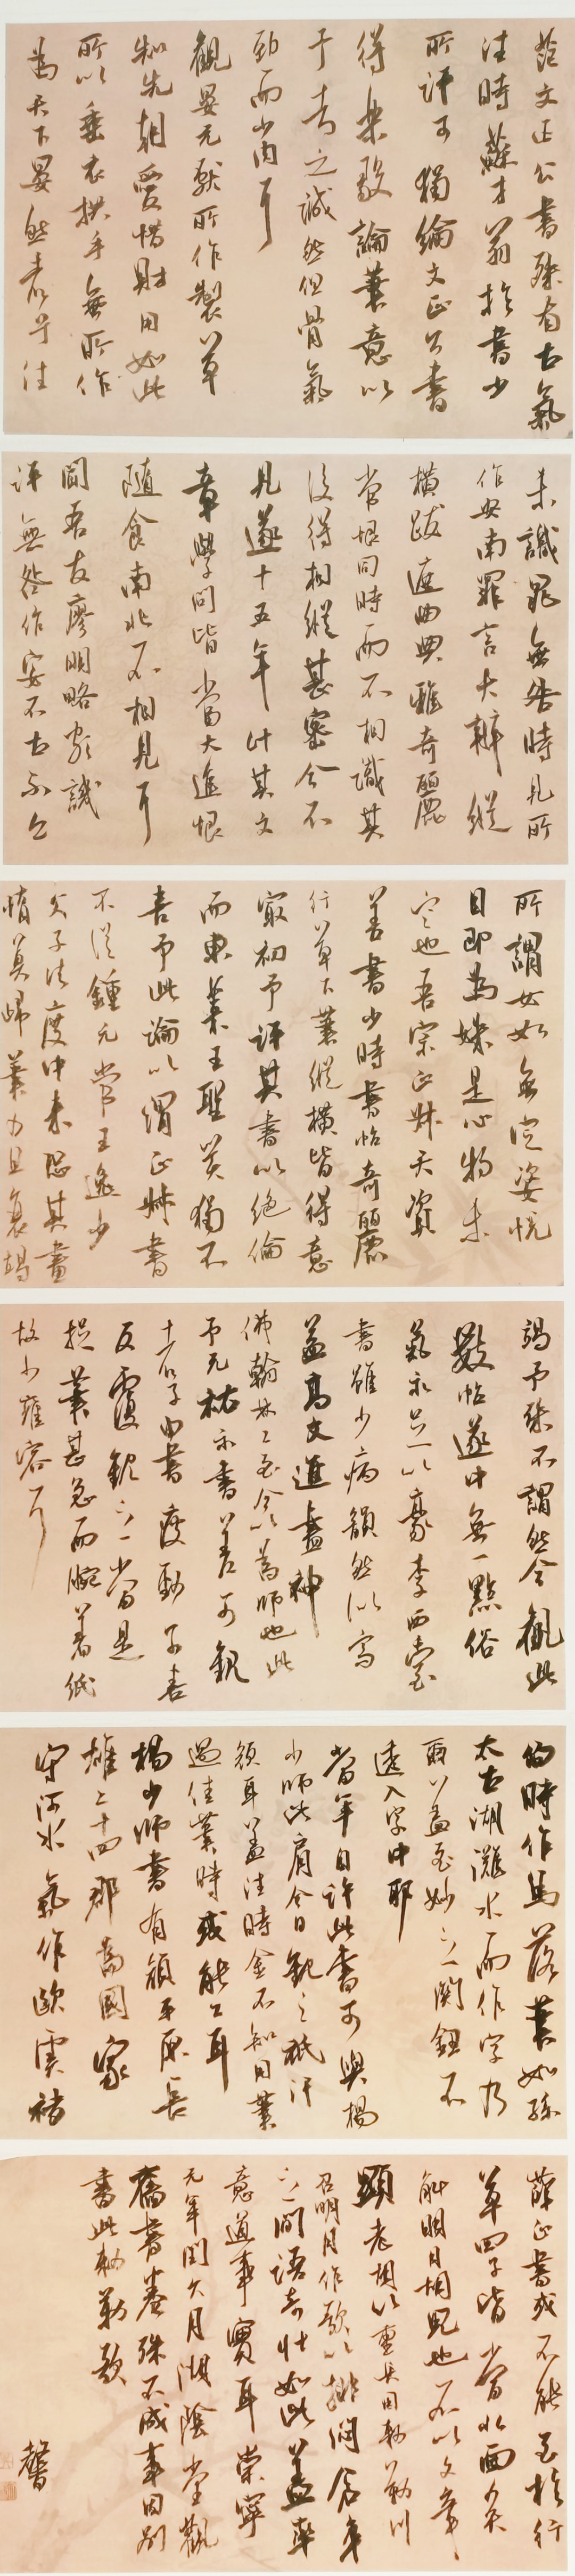 范文正公書殊有古氣
往時蘇才翁於書少
所許可獨論文正公書
得樂毅論筆意以
予考之誠然但骨氣
勁而少肉耳
觀晏元獻所作製草
知先朝愛惜財用如此
所以垂衣拱手無所作
為天下晏然者乎往
未識晁無咎時見所
作安南罪言大辯縱
橫跋遮曲典雅奇麗
常恨同時而不相識其
後得相從甚密今不
見遂十五年計其文
章學問皆當大進恨
隨食南北不相見耳
聞吾友廖明略
評無咎作
所謂女如無定姿悅
目即為姝是心物未
定也吾宗正叔天資
善書少時書帖奇麗
行草下筆縱橫皆得意
最初予評其書以絕倫
而東萊王聖美獨不
喜予此論以謂正叔書
不從鍾元常王逸少
父子法度中來恐其晝
惰莫歸筆力且衰竭
竭予殊不謂然今觀此
數帖遂中無一點俗
氣亦足以豪李西臺
書雖少病韻然似寫
蓋高文進畫神
佛翰林工至今以為師也此
予元祐示書差可觀
十不子由書瘦勁可喜
反覆觀之當是
捉筆甚急而腕著紙
故少雍容耳
伯時作馬落筆如孫
太古湖灘水而作字乃
爾以蓋至妙之關鈕不
透入字中耶
當年自許此書可與楊
少師比肩今日觀之祇汗
顏耳蓋往時全不知用筆
過佳筆時或能工耳
楊少師書有顏平原長
雄二十四郡為國家
守河北氣作歐虞褚
薛正書或不能至於行
草四子皆當北面矣
解明月胡兒也不以文章
顯老胡以重兵困勅勒川
召明月作歌以排悶倉卒
之間語奇壯如此蓋率
意道事實耳崇寧
元年閏六月湖陰堂觀
舊書卷殊不成事因別
書此勅勒歌